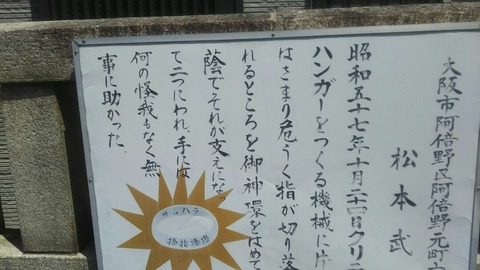 大阪市阿倍野区阿倍野元町
松本武
昭和五十七年十月二十四日クリ
ハンガーをつくる機械に片
はさまり危うく指が切り落
れるところを御神環をはめて
蔭でそれが支えにな
て二つにわれ、手には
何の怪我もなく無
事に助かった。
サムハラ